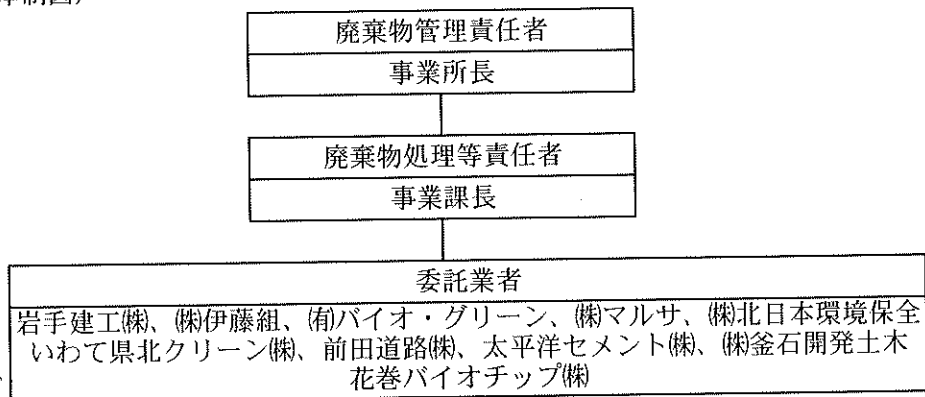 制図）
廃棄物管理責任者
事業所長
廃棄物処理等責任者
事業課長
委託業者
岩手建工㈱、㈱伊藤組、㈲バイオ・グリーン、㈱マルサ、㈱北日本環境保全
いわて県北クリーン㈱、前田道路㈱、太平洋セメント㈱、㈱釜石開発土木
花巻バイオチップ㈱